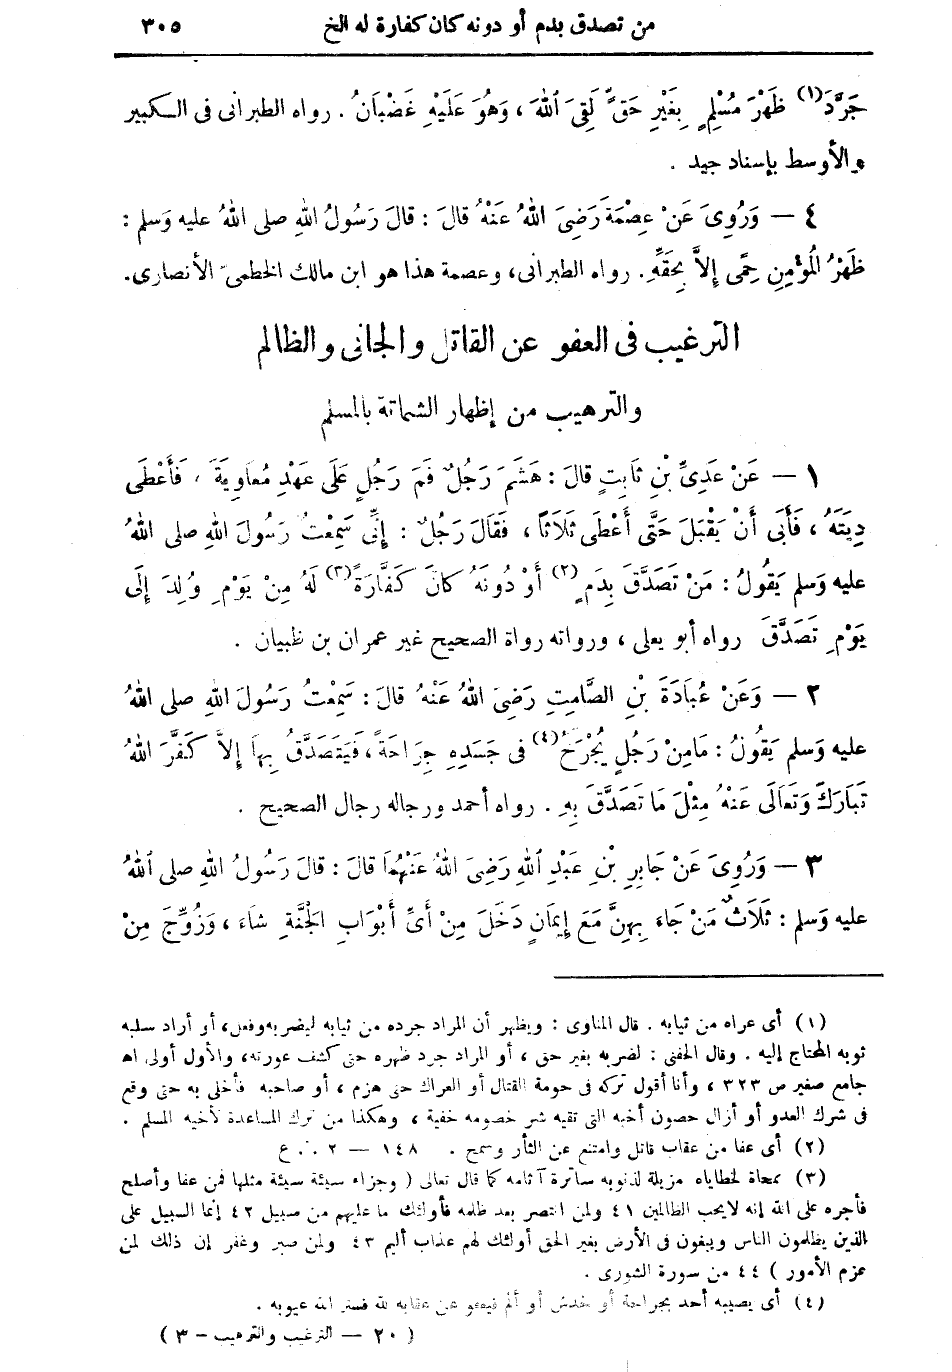 من تصدق بدم أو دونه كان كفارة له الخ ٣٠٥
جَرَّدَ (١) ظَهْرَ مُسْلِمٍ بِغَيْرِ حَقٍّ لَقِىَ اللهَ ، وَهُوَ عَلَيْهِ غَضْبَانُ . رواه الطبرانى فى الكبير
والأوسط بإسناد جيد .
٤ — وَرُوِىَ عَنْ عِصْمَةَ رَضِىَ اللهُ عَنْهُ قالَ : قالَ رَسُولُ اللهِ صلى اللهُ عليه وَسلم :
ظَهْرُ الْمُؤْمِنِ حِمًى إِلاَّ بِحَقِّهِ . رواه الطبرانى، وعصمة هذا هو ابن مالك الخطمىّ الأنصارى.
الترغيب فى العفو عن القاتل والجانى والظالم
والترهيب من إظهار الشماتة بالمسلم
١ — عَنْ عَدِىِّ بْنِ ثَابِتٍ قالَ : هَشَمَ رَجُلٌ فَمَ رَجُلٍ عَلَى عَهْدِ مُعاوِيَةَ ، فَأَعْطَى
دِيَتَهُ ، فَأَبَى أَنْ يَقْبَلَ حَتَّى أَعْطَى ثَلَاثًا ، فَقَالَ رَجُلٌ : إِنِّى سَمِعْتُ رَسُولَ اللهِ صلى اللهُ
عليه وَسلم يَقُولُ : مَنْ تَصَدَّقَ بِدَمٍ (٢) أَوْ دُونَهُ كَانَ كَفَّارَةً (٣) لَهُ مِنْ يَوْمِ وُلِدَ إِلَى
يَوْمِ تَصَدَّقَ رواه أبو يعلى ، ورواته رواة الصحيح غير عمران بن ظبيان .
٢ — وَعَنْ عُبَادَةَ بْنِ الصَّامِتِ رَضِىَ اللهُ عَنْهُ قالَ : سَمِعْتُ رَسُولَ اللهِ صلى اللهُ
عليه وَسلم يَقُولُ : مَامِنْ رَجُلٍ يُجْرَحُ (٤) فى جَسَدِهِ جِرَاحَةً ، فَيَتَصَدَّقُ بِهاَ إِلاَّ كَفَّرَ اللهُ
تَبَارَكَ وَتَعَالَى عَنْهُ مِثْلَ مَا تَصَدَّقَ بِهِ . رواه أحمد ورجاله رجال الصحيح .
٣ — وَرُوِىَ عَنْ جَابِرِ بْنِ عَبْدِ اللهِ رَضِىَ اللهُ عَنْهُمَا قالَ : قالَ رَسُولُ اللهِ صلى اللهُ
عليه وَسلم : ثَلَاثٌ مَنْ جَاءَ بِهِنَّ مَعَ إِيمَانٍ دَخَلَ مِنْ أَىِّ أَبْوَابِ الْجَنَّةِ شاَءَ ، وَزُوِّجَ مِنْ
(١) أى عراه من ثيابه . قال المناوى : ويظهر أن المراد جرده من ثيابه ليضربه وفعل، أو أراد سلبه
ثوبه المحتاج إليه . وقال الحفنى : لضربه بغير حق ، أو المراد جرد ظهره حتى كشف عورته، والأول أولى اهـ
جامع صغير ص ٣٢٣ ، وأنا أقول تركه فى حومة القتال أو العراك حتى هزم ، أو صاحبه فأخلى به حتى وقع
فى شرك العدو أو أزال حصون أخيه التى تقيه شر خصومه خفية ، وهكذا من ترك المساعدة لأخيه المسلم .
(٢) أى عفا من عقاب قاتل وامتنع عن الثأر وسمح . ١٤٨ — ٢ . ع
(٣) ممحاة لخطاياه مزيلة لذنوبه ساترة آثامه كما قال تعالى ( وجزاء سيئة سيئة مثلها فمن عفا وأصلح
فأجره على الله إنه لايحب الظالمين ٤١ ولمن انتصر بعد ظلمه فأولئك ما عليهم من سبيل ٤٢ إنما السبيل على
الذين يظلمون الناس ويبغون فى الأرض بغير الحق أولئك لهم عذاب أليم ٤٣ ولمن صبر وغفر إن ذلك لمن
عزم الأمور ) ٤٤ من سورة الشورى .
(٤) أى يصيبه أحد بجراحة أو بخدش أو ألم فيعفو عن عقابه لله فستر الله عيوبه .
( ٢٠ — الترغيب والترهيب – ٣ )